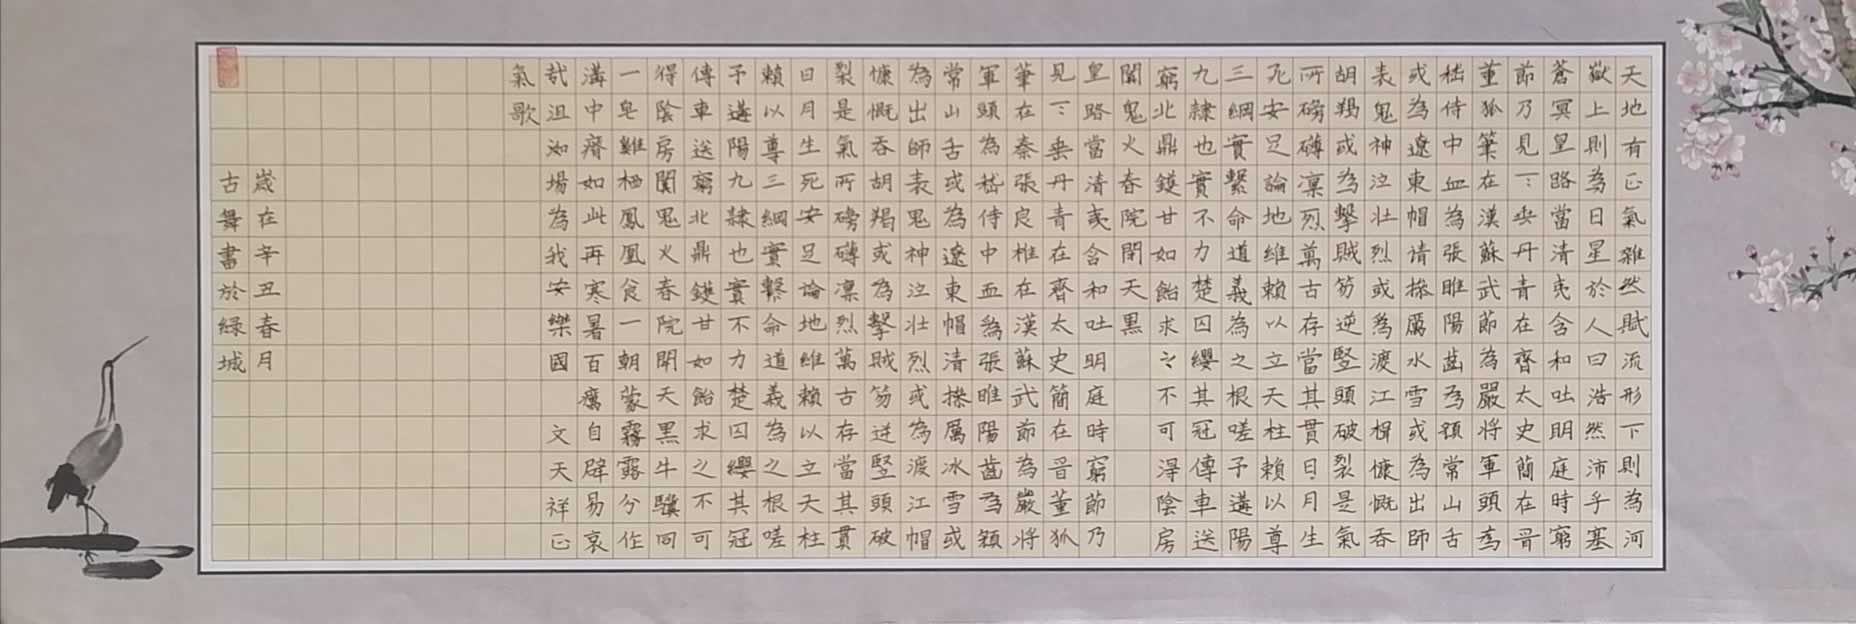 天地有正氣雜然賦流形下則為河
嶽上則為日星於人曰浩然沛乎塞
蒼冥皇路當清夷含和吐明庭時窮
節乃見一一垂丹青在齊太史簡在晉
董狐筆在漢蘇武節為嚴將軍頭為
嵇侍中血為張睢陽齒為顏常山舌
或為遼東帽清操厲水雪或為出師
表鬼神泣壯烈或為渡江楫慷慨吞
胡羯或為擊賊笏逆竪頭破裂是氣
所磅礴凜烈萬古存當其貫日月生
死安足論地維賴以立天柱賴以尊
三綱實繫命道義為之根嗟予遘陽
九隸也實不力楚囚纓其冠傳車送
窮北鼎鑊甘如飴求之不可得陰房
闐鬼火春院閉天黑
皇路當清夷含和吐明庭時窮節乃
見一一垂丹青在齊太史簡在晉董狐
筆在秦張良椎在漢蘇武節為嚴將
軍頭為嵇侍中血為張睢陽齒為顏
常山舌或為遼東帽清操厲冰雪或
為出師表鬼神泣壯烈或為渡江帽
慷慨吞胡羯或為擊賊笏逆竪頭破
裂是氣所磅礴凜烈萬古存當其貫
日月生死安足論地維賴以立天柱
賴以尊三綱實繫命道義為之根嗟
予遘陽九隸也實不力楚囚纓其冠
傳車送窮北鼎鑊甘如飴求之不可
得陰房闐鬼火春院閉天黑牛驥同
一皂雞栖鳳凰食一朝蒙霧露分作
溝中瘠如此再寒暑百癘自辟易哀
哉沮洳場為我安樂國 文天祥正
氣歌
歲在辛丑春月
古舞書於綠城